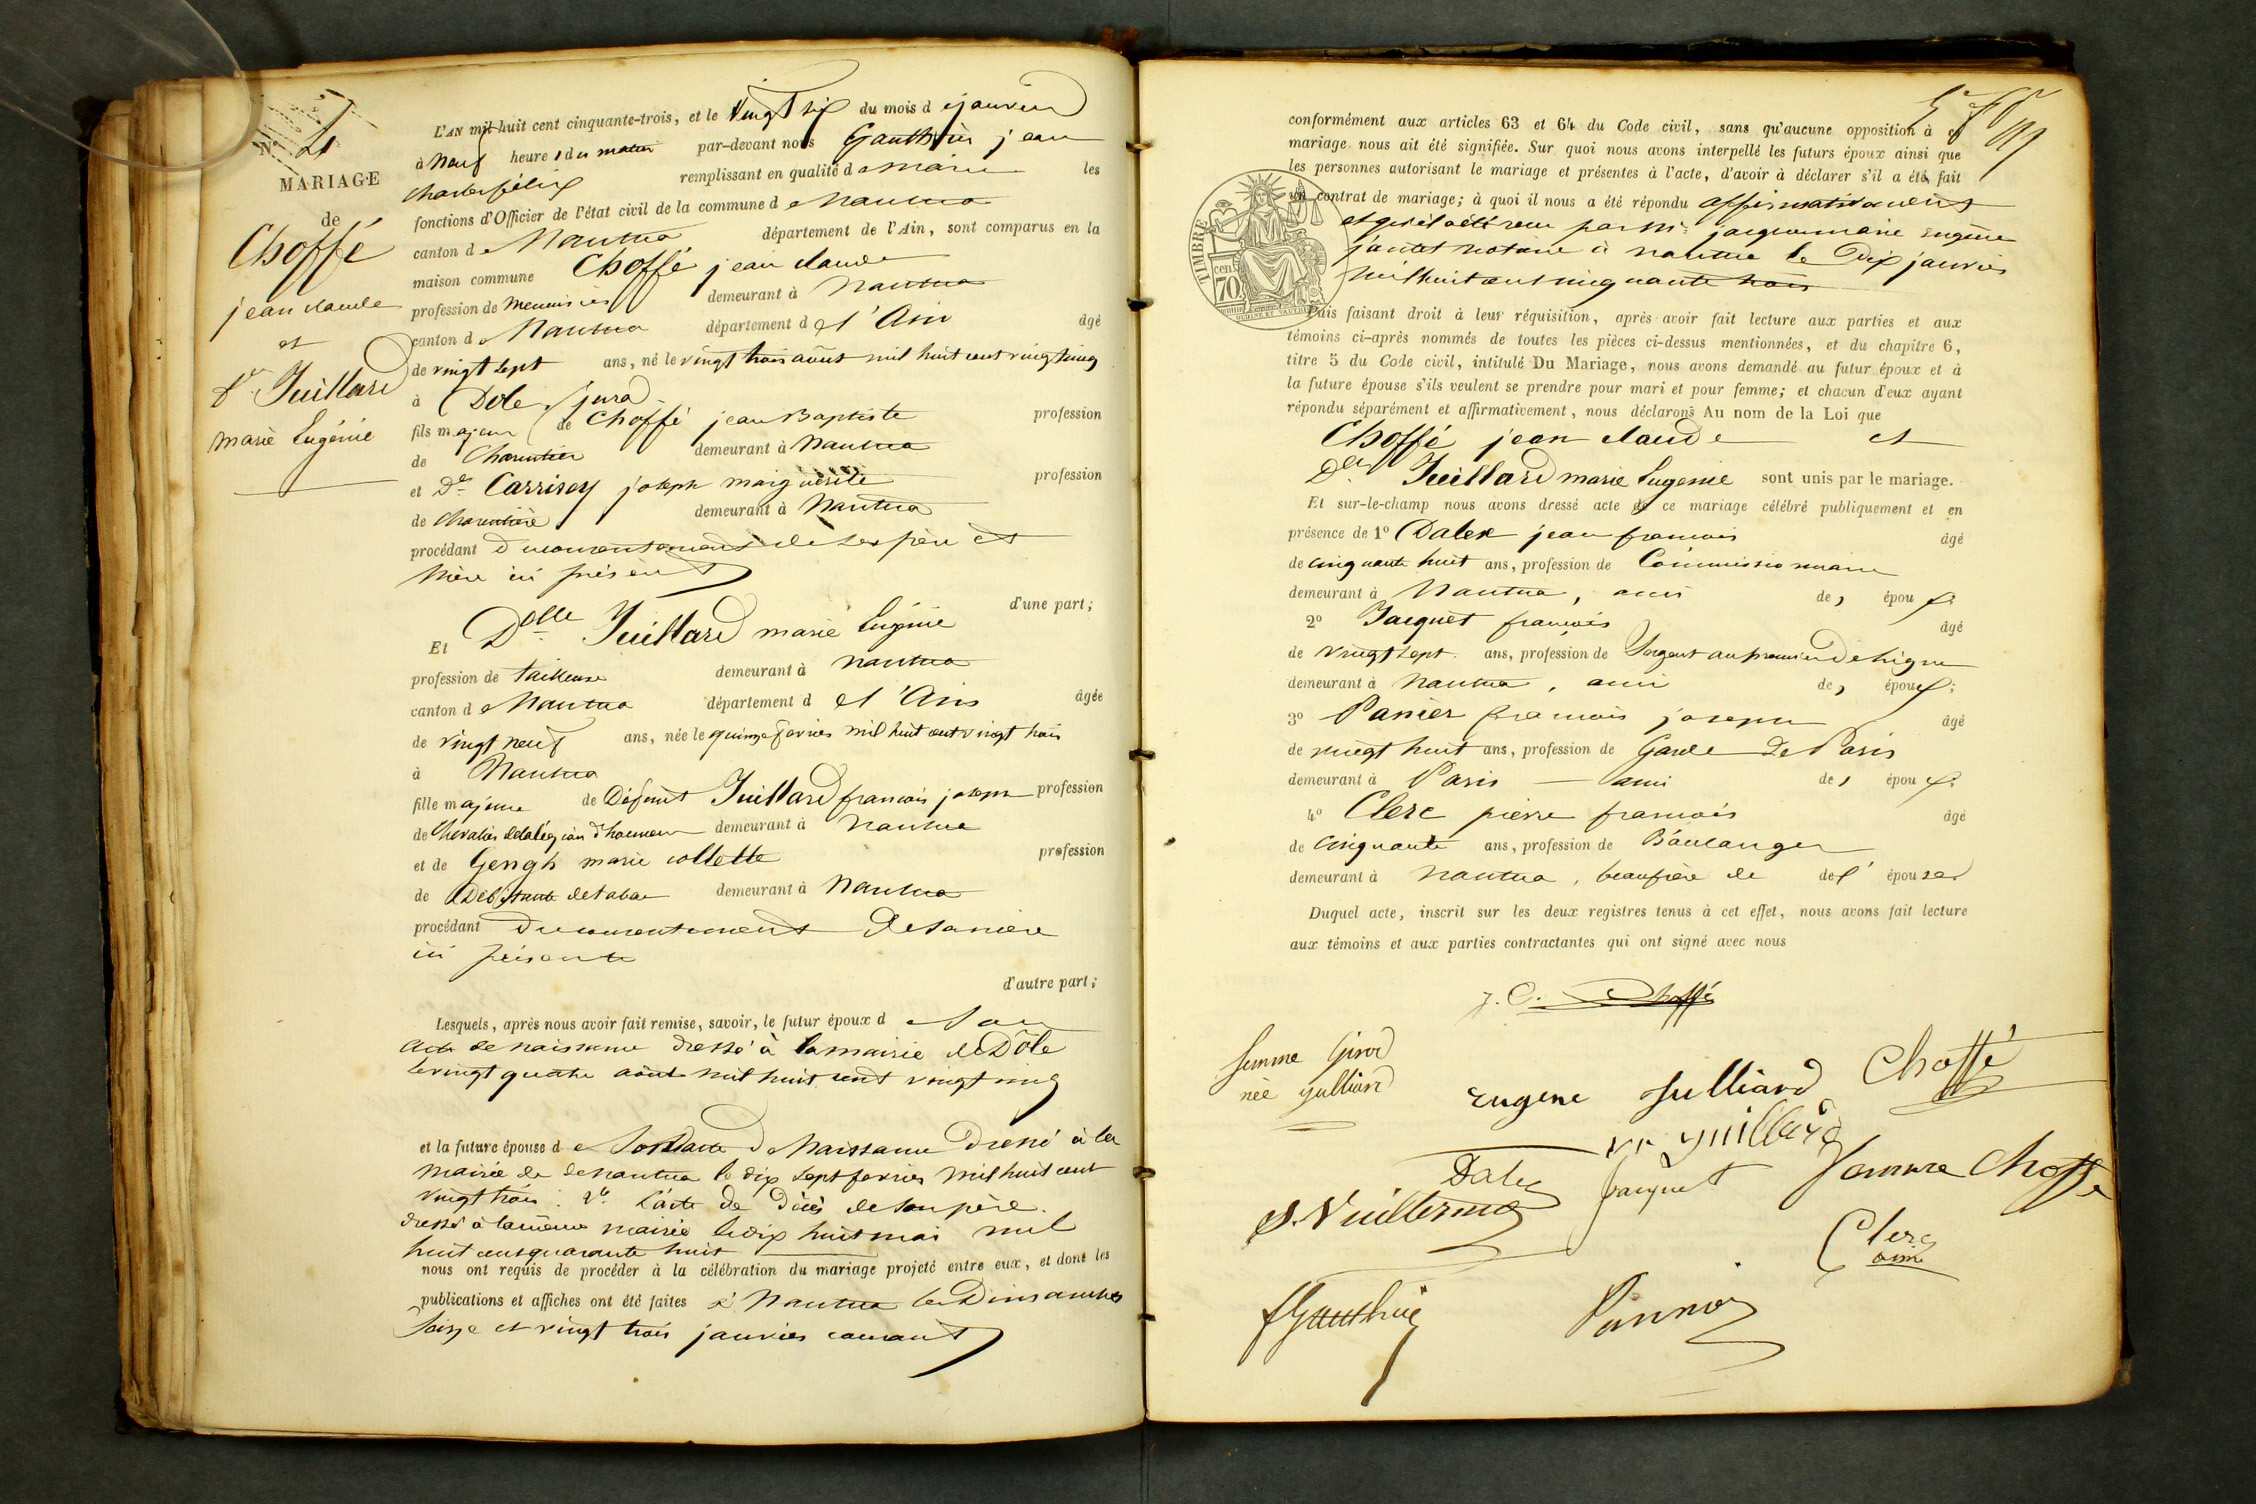 N° 4
MARIAGE
de
Choffé
jean claude
et
Dlle Juillard
marie Eugénie
L'AN mil-huit cent cinquante-trois, et le Vingt six du mois de janvier
à neuf heures du matin par-devant nous Gauthier jean
charles félix remplissant en qualité de maire les
fonctions d'Officier de l'état civil de la commune de Nantua
canton de Nantua département de l'Ain, sont comparus en la
maison commune Choffé jean claude
profession de menuisier demeurant à Nantua
canton de Nantua département de l'Ain âgé
de vingt sept ans, né le vingt trois août mil huit cent vingt cinq
à Dole, jura
fils majeur de Choffé jean Baptiste profession
de Charcutier demeurant à Nantua
et De Carrisey joseph marguerite profession
de charcutière demeurant à Nantua
procédant du consentement de ses père et
mère ici présents
d'une part;
Et Dlle Juillard marie Eugénie
profession de tailleuse demeurant à nantua
canton de Nantua département de l'Ain âgée
de vingt neuf ans, née le quinze fevrier mil huit cent vingt trois
à Nantua
fille majeure de Défunt Juillard francois joseph profession
de Chevalier de la légion d'honneur demeurant à nantua
et de Gengh marie collette profession
de Débitante de tabac demeurant à Nantua
procédant du consentement de sa mère
ici présente
d'autre part;
Lesquels, après nous avoir fait remise, savoir, le futur époux de son
acte de naissance dressé à la mairie de Dôle
le vingt quatre août mil huit cent vingt cinq
et la future épouse de son acte de Naissance Dressé à la
mairie de de nantua le dix sept fevrier mil huit cent
vingt trois : 2° L'acte de Décès de son père.
dressé à la même mairie le dix huit mai mil
huit cent quarante huit
nous ont requis de procéder à la célébration du mariage projeté entre eux, et dont les
publications et affiches ont été faites à Nantua les Dimanches
seize et vingt trois janvier courant
conformément aux articles 63 et 64 du Code civil, sans qu'aucune opposition à ce
mariage nous ait été signifiée. Sur quoi nous avons interpellé les futurs époux ainsi que
les personnes autorisant le mariage et présentes à l'acte, d'avoir à déclarer s'il a été fait
un contrat de mariage; à quoi il nous a été répondu affirmativement
et qu'il a été reçu par Me jacques marie Eugène
jantet notaire à nantua le Dix janvier
mil huit cent cinquante trois
TIMBRE
70 cen.
Puis faisant droit à leur réquisition, après avoir fait lecture aux parties et aux
témoins ci-après nommés de toutes les pièces ci-dessus mentionnées, et du chapitre 6,
titre 5 du Code civil, intitulé Du Mariage, nous avons demandé au futur époux et à
la future épouse s'ils veulent se prendre pour mari et pour femme; et chacun d'eux ayant
répondu séparément et affirmativement, nous déclarons Au nom de la Loi que
Choffé jean claude et
Dlle Juillard marie Eugenie sont unis par le mariage.
Et sur-le-champ nous avons dressé acte de ce mariage célébré publiquement et en
présence de 1° Dalex jean francois âgé
de cinquante huit ans, profession de Commissionnaire
demeurant à Nantua, ami des époux
2° Jacquet francois âgé
de vingt sept ans, profession de Sergent au premier De ligne
demeurant à Nantua, ami des époux;
3° Panier francois joseph âgé
de vingt huit ans, profession de Garde De Paris
demeurant à Paris — ami des époux
4° Clerc pierre francois âgé
de cinquante ans, profession de Boulanger
demeurant à Nantua, beaufrère de de l'épouse
Duquel acte, inscrit sur les deux registres tenus à cet effet, nous avons fait lecture
aux témoins et aux parties contractantes qui ont signé avec nous
J. C. Choffé
femme Girod
née julliard
Eugene Julliard Choffé
ve juillard
Dalex jacquet femme Choffé
S. Vuillermoz
Clerc
aimé
f Gauthier Pannier